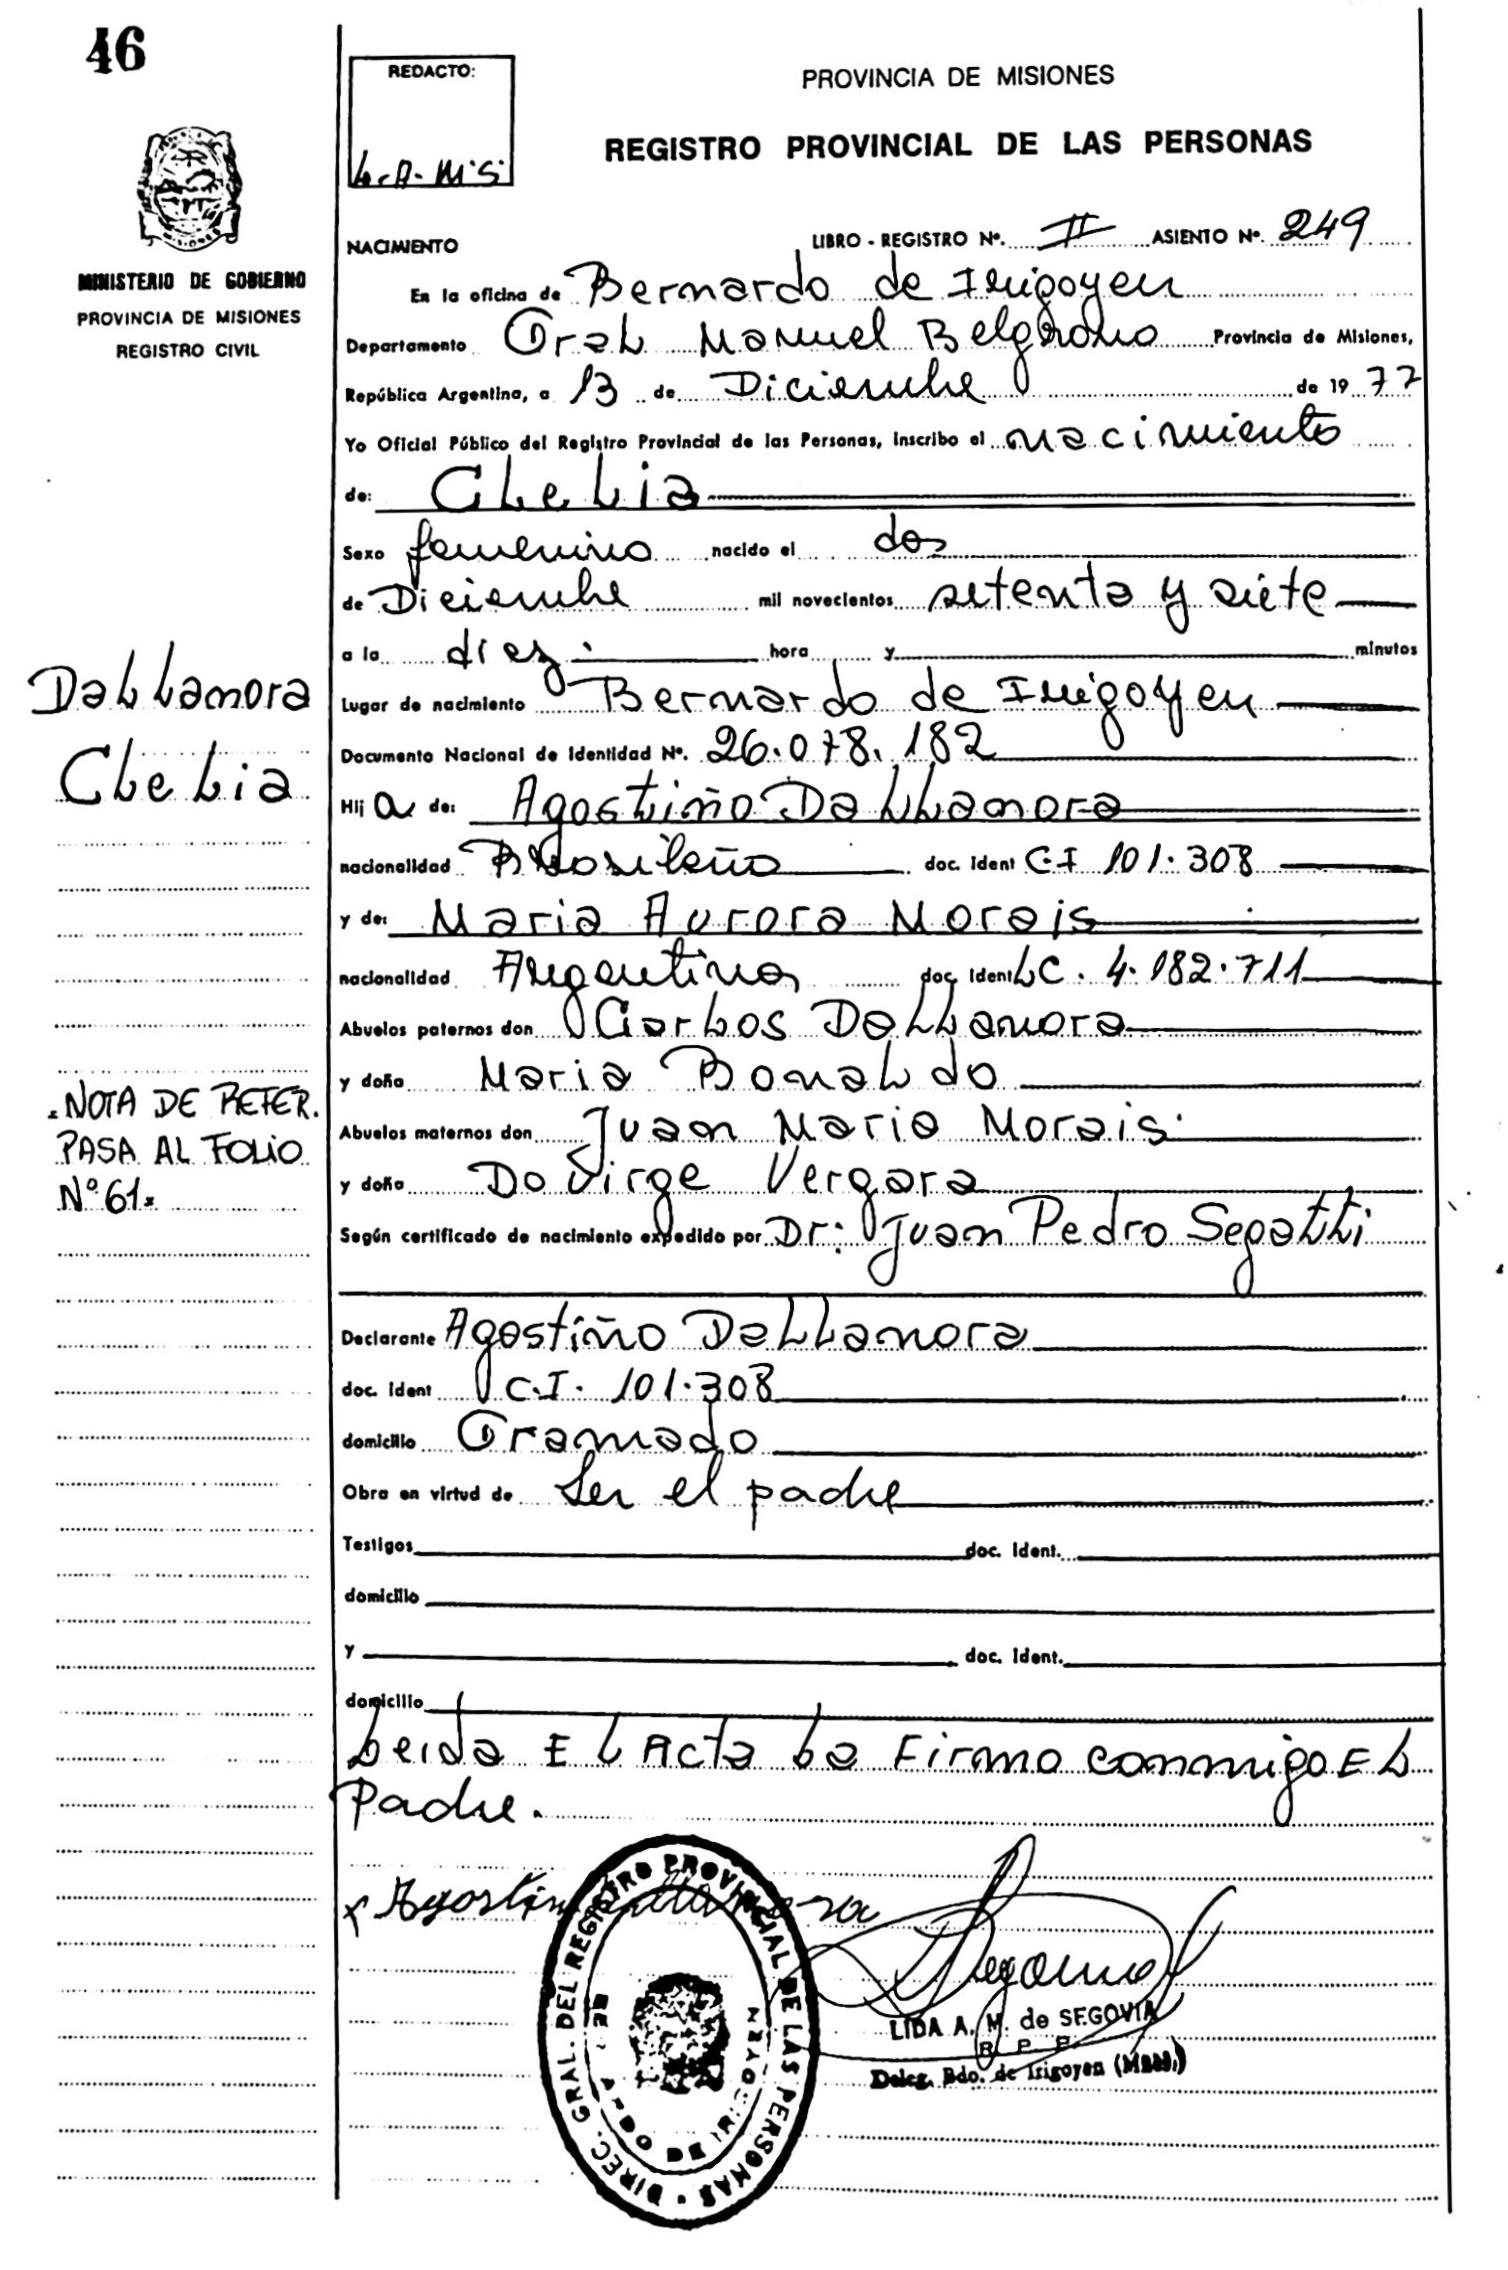 46
REDACTO:
L.A. MS
PROVINCIA DE MISIONES
REGISTRO PROVINCIAL DE LAS PERSONAS
MISIONES
MINISTERIO DE GOBIERNO
PROVINCIA DE MISIONES
REGISTRO CIVIL
NACIMIENTO
LIBRO - REGISTRO Nº. II ASIENTO Nº. 249
En la oficina de Bernardo de Irigoyen
Departamento Gral Manuel Belgrano Provincia de Misiones,
República Argentina, a 13 de Diciembre de 1977
Yo Oficial Público del Registro Provincial de las Personas, inscribo el nacimiento
de: Clelia
Sexo femenino nacido el dos
de Diciembre mil novecientos setenta y siete
a la diez hora y minutos
Lugar de nacimiento Bernardo de Irigoyen
Documento Nacional de Identidad Nº. 26.078.182
Hija de: Agostiño Dallamora
nacionalidad Brasileño doc. ident C.I 101.308
y de: Maria Aurora Morais
nacionalidad Argentina doc. ident LC. 4.182.711
Abuelos paternos don Carlos Dallanora
y doña Maria Bonaldo
Abuelos maternos don Juan Mario Morais
y doña Dovirge Vergara
Según certificado de nacimiento expedido por Dr: Juan Pedro Segatti
Declarante Agostiño Dallanora
doc. ident C.I. 101.308
domicilio Gramado
Obra en virtud de Ser el padre
Testigos doc. ident.
domicilio
y doc. ident.
domicilio
Leida El Acta La Firma conmigo El
Padre.
Dallanora
Clelia
NOTA DE REFER.
PASA AL FOLIO
Nº 61
DIREC. GRAL. DEL REGISTRO PROVINCIAL DE LAS PERSONAS
LIDA A. M. de SEGOVIA
R. P. P.
Deleg. Bdo. de Irigoyen (Mnes.)